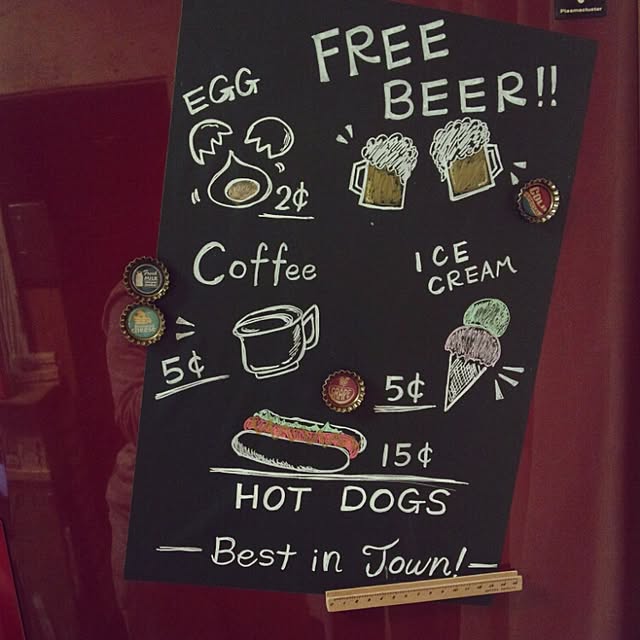 Plasmacluster
FREE
BEER!!
EGG
2¢
Coffee
5¢
ICE
CREAM
5¢
15¢
HOT DOGS
— Best in Town! —